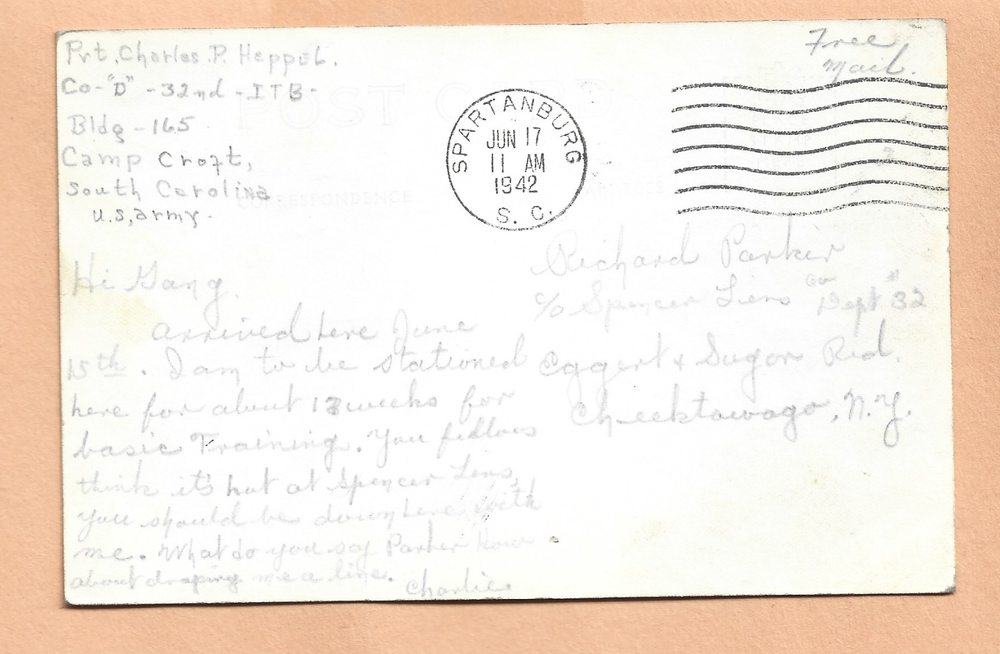 Pvt. Charles. P. Heppel.
Co-"D" - 32nd - ITB-
Bldg - 165
Camp Croft,
South Carolina
U.S, army-
Free
Mail.
SPARTANBURG
JUN 17
11 AM
1942
S. C.
POST CARD
CORRESPONDENCE
Hi Gang.
arrived here June
15th. I am to be stationed
here for about 13 weeks for
basic Training. You fellows
think it's hot at Spencer Lens,
You should be down here with
me. What do you say Parker How
about droping me a line.
Charlie
Richard Parker
c/o Spencer Lens Co Dept "32
Eggert & Sugar Rd.
Cheektowago, N.Y.